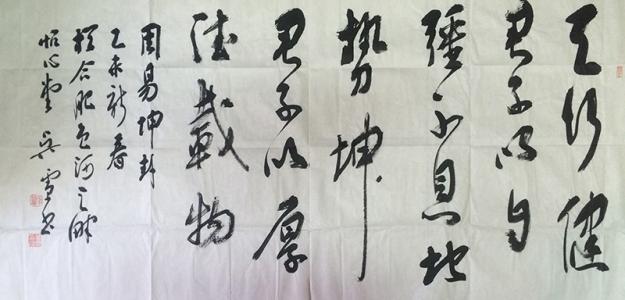 天行健
君子以自
彊不息地
勢坤
君子以厚
德載物
周易坤卦
乙未新春
合肥包河之畔
心堂 吴雪书